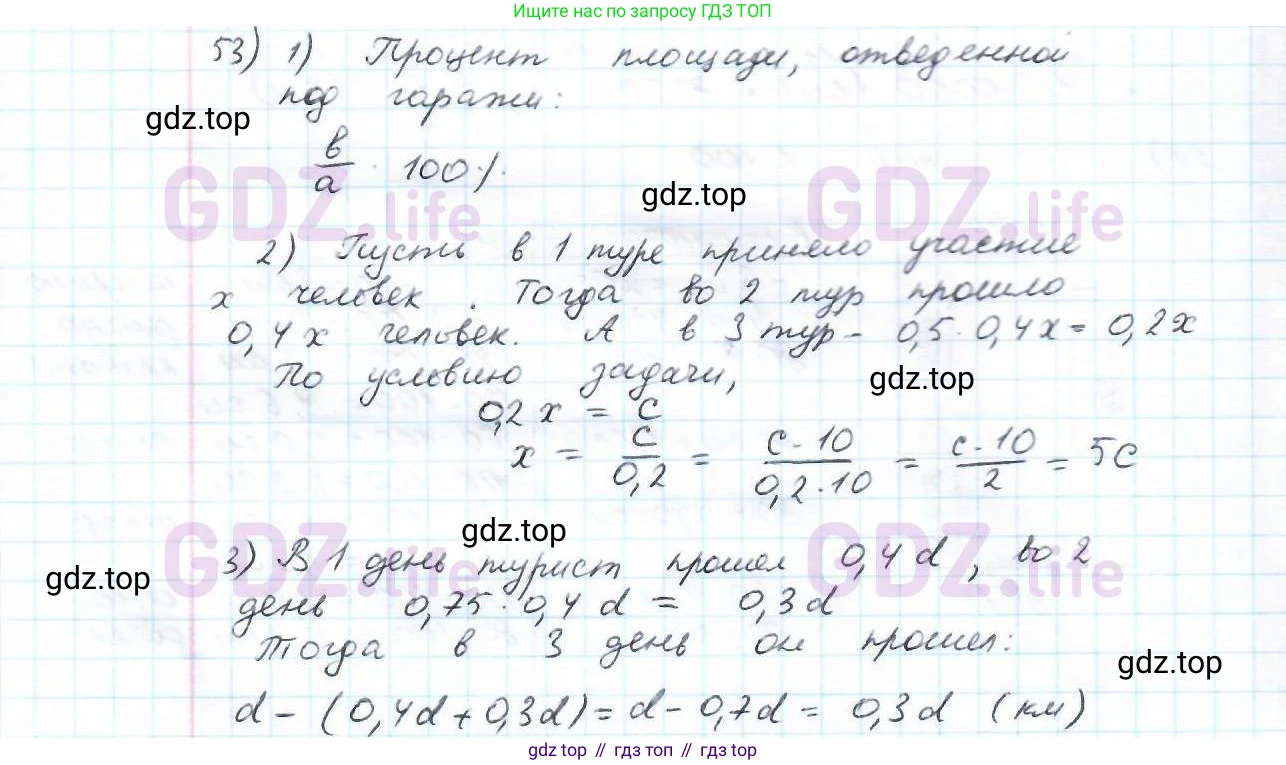 Ищите нас по запросу ГДЗ ТОП
53) 1) Процент площади, отведенной
под гаражи:
gdz.top
в/а · 100%.
gdz.top
GDZ.life GDZ.life
2) Пусть в 1 туре приняло участие
x человек. Тогда во 2 тур прошло
0,4x человек. А в 3 тур - 0,5·0,4x = 0,2x
По условию задачи,
gdz.top
0,2x = c
x = c/0,2 = c·10/0,2·10 = c·10/2 = 5c
gdz.top
GDZ.life GDZ.life
3) В 1 день турист прошел 0,4d, во 2
gdz.top
день 0,75·0,4d = 0,3d
Тогда в 3 день он прошел:
gdz.top
d - (0,4d + 0,3d) = d - 0,7d = 0,3d (км)
gdz top // гдз топ // гдз top